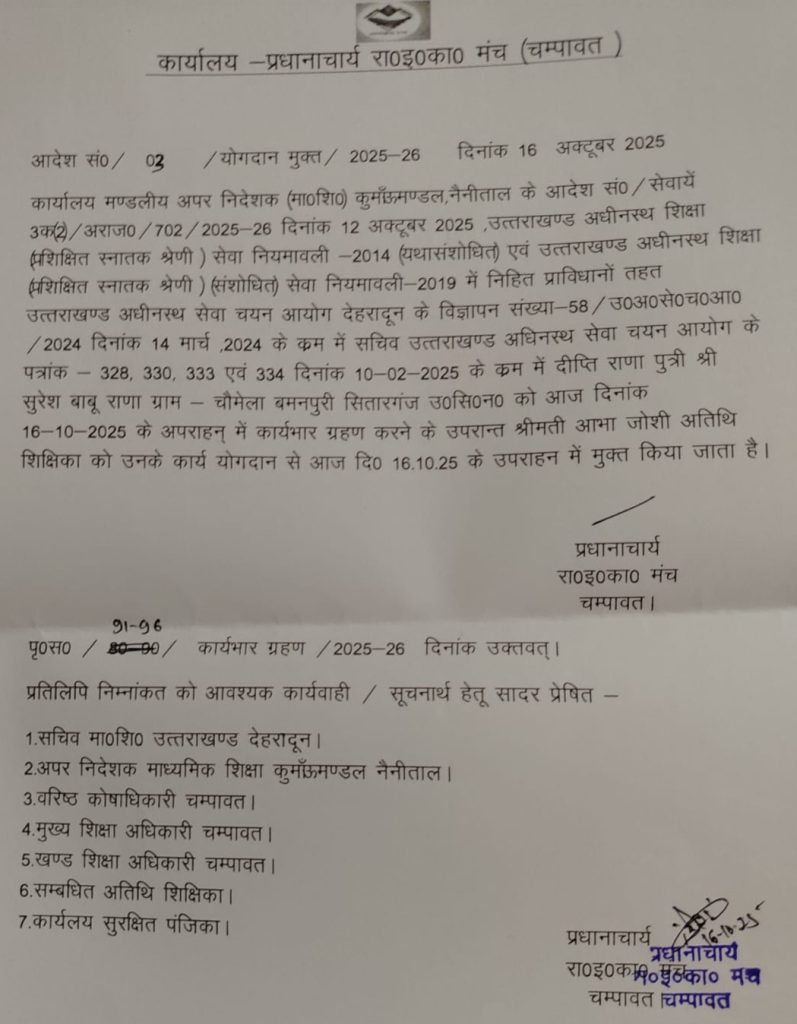 कार्यालय –प्रधानाचार्य रा0इ0का0 मंच (चम्पावत )
आदेश सं0/ 03 /योगदान मुक्त/ 2025–26 दिनांक 16 अक्टूबर 2025
कार्यालय मण्डलीय अपर निदेशक (मा0शि0) कुमाँऊमण्डल,नैनीताल के आदेश सं0/सेवायें
3क(2)/अराज0/702/2025–26 दिनांक 12 अक्टूबर 2025 ,उत्तराखण्ड अधीनस्थ शिक्षा
(प्रशिक्षित स्नातक श्रेणी ) सेवा नियमावली –2014 (यथासंशोधित) एवं उत्तराखण्ड अधीनस्थ शिक्षा
(प्रशिक्षित स्नातक श्रेणी ) (संशोधित) सेवा नियमावली–2019 में निहित प्राविधानों तहत
उत्तराखण्ड अधीनस्थ सेवा चयन आयोग देहरादून के विज्ञापन संख्या–58/उ0अ0से0च0आ0
/2024 दिनांक 14 मार्च ,2024 के क्रम में सचिव उत्तराखण्ड अधिनस्थ सेवा चयन आयोग के
पत्रांक – 328, 330, 333 एवं 334 दिनांक 10–02–2025 के क्रम में दीप्ति राणा पुत्री श्री
सुरेश बाबू राणा ग्राम – चौमेला बमनपुरी सितारगंज उ0सि0न0 को आज दिनांक
16–10–2025 के अपराहन् में कार्यभार ग्रहण करने के उपरान्त श्रीमती आभा जोशी अतिथि
शिक्षिका को उनके कार्य योगदान से आज दि0 16.10.25 के उपराहन में मुक्त किया जाता है।
प्रधानाचार्य
रा0इ0का0 मंच
चम्पावत।
91-96
पृ0स0 / 80–90/ कार्यभार ग्रहण /2025–26 दिनांक उक्तवत्।
प्रतिलिपि निम्नांकत को आवश्यक कार्यवाही / सूचनार्थ हेतू सादर प्रेषित –
1.सचिव मा0शि0 उत्तराखण्ड देहरादून।
2.अपर निदेशक माध्यमिक शिक्षा कुमाँऊमण्डल नैनीताल।
3.वरिष्ठ कोषाधिकारी चम्पावत।
4.मुख्य शिक्षा अधिकारी चम्पावत।
5.खण्ड शिक्षा अधिकारी चम्पावत।
6.सम्बधित अतिथि शिक्षिका।
7.कार्यलय सुरक्षित पंजिका।
16-10-25
प्रधानाचार्य
रा0इ0का0 मंच
चम्पावत।
प्रधानाचार्य
रा०इ०का० मंच
चम्पावत